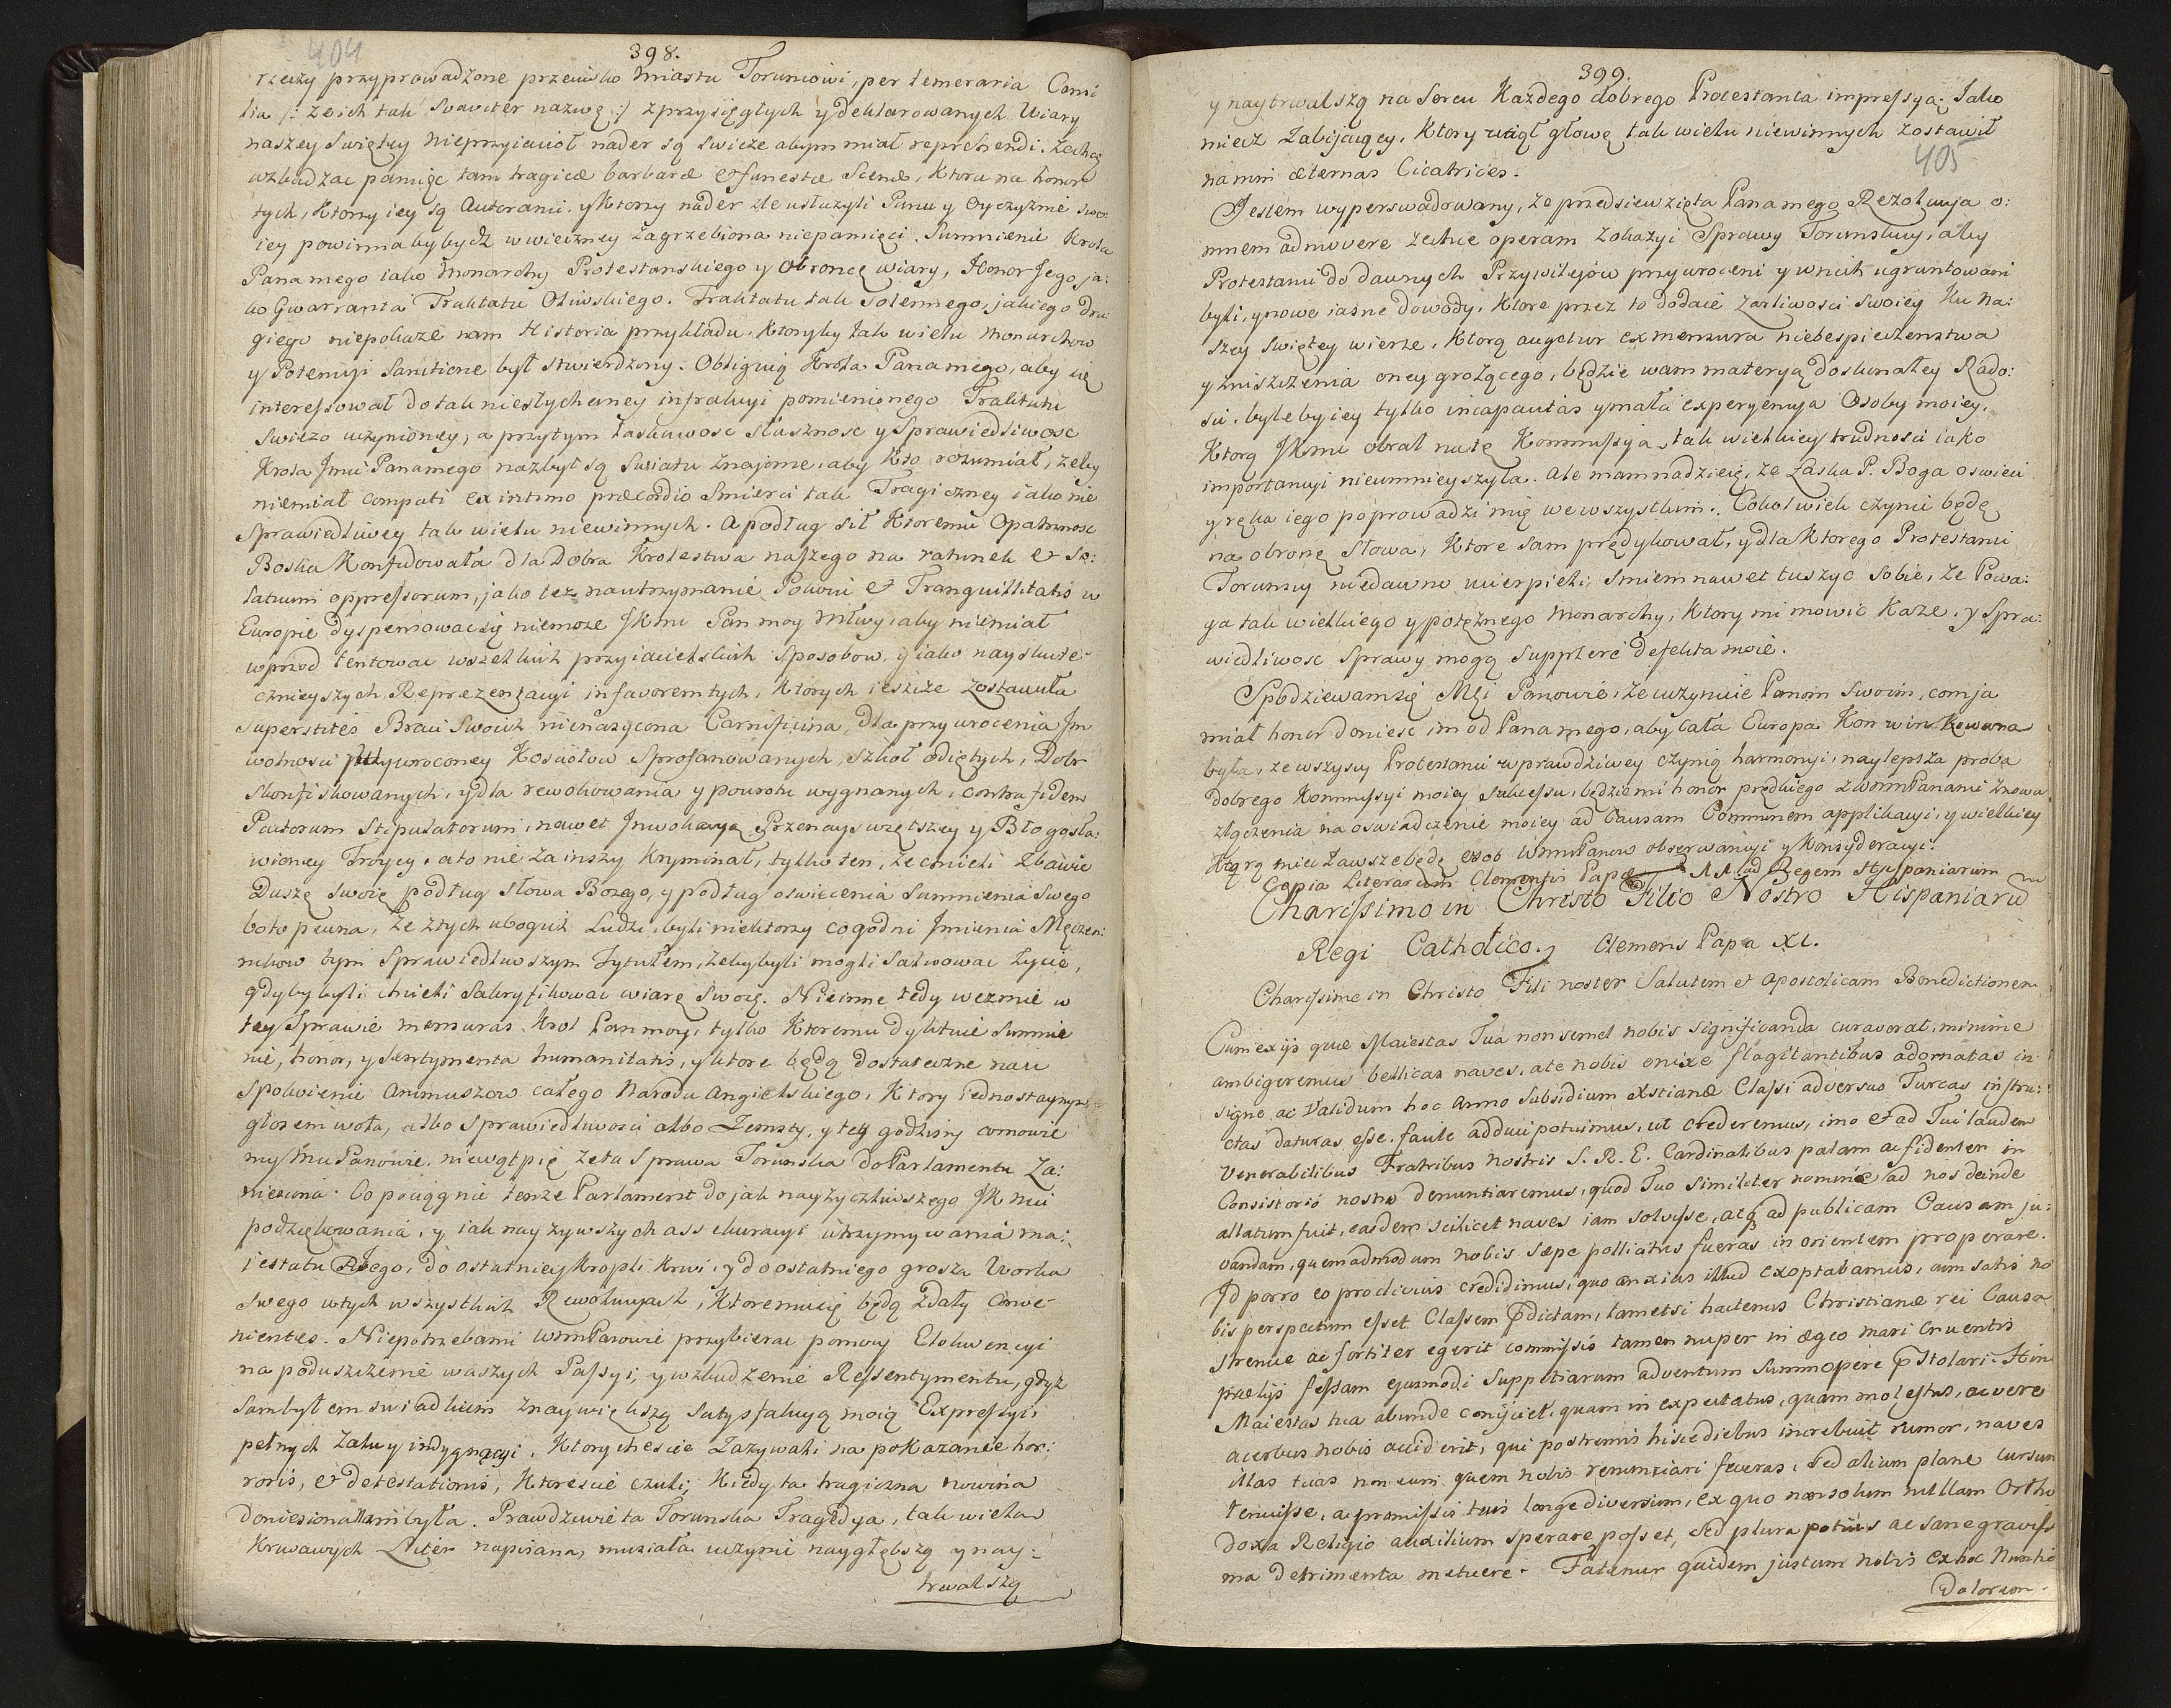 404
398.
rzeczy przyprowadzone przeciwko Miastu Toruniowi, per temeraria Consi
lia /: że ich tak Svaviter nazwę :/ z przysięgłych y deklarowanych Wiary
naszey Swiętey Nieprzyiaciół nader są swieże abym miał reprehendi. Zechcę
wzbudzac pamięc tam tragicæ barbaræ et funestæ Scenæ, Ktora na honor
tych, Ktorzy iey są Autorami y Ktorzy nader zle usłużyli Panu y Oyczyznie swo
iey powinnaby bydz w wieczney zagrzebiona niepamięci. Sumnienie Krola
Pana mego iako Monarchy Protestanskiego y Obroncę wiary, Honor Jego ja:
ko Gwarranta Traktatu Oliwskiego. Traktatu tak solennego, jakiego dru
giego niepokaże nam Historia przykładu. Ktoryby tak wielu Monarchow
y Potencyi Sancitione był stwierdzony. Obliguią Krola Pana mego, aby się
interessował do tak niesłychaney infrakcyi pomienionego Traktatu
swieżo uczynioney, a przytym łaskawosc słusznosc y Sprawiedliwosc
Krola Jmci Pana mego nazbyt są Swiatu znajome, aby Kto rozumiał, żeby
niemiał compati ex intimo præcordio Smierci tak Tragiczney iako nie
Sprawiedliwey tak wielu niewinnych. A podług sił Ktoremu Opatrznosc
Boska Konfidowała dla Dobra Krolestwa naszego na ratunek et So:
latium oppressorum, jako też na utrzymanie Pokoiu et Tranquillitatis w
Europie dyspensowac się niemoże JKmc Pan moy Młwy, aby niemiał
wprzod tentowac wszelkich przyiacielskich sposobow, y iako nayskute-
cznieyszych Reprezentacyi in favorem tych, Ktorych ieszcze zostawiła
superstites Braci Swoich nienasycona Carnificina, dla przywrocenia Jm
wolnosci przywroconey Kosciołow Sprofanowanych, Szkoł odiętych, Dobr
skonfiskowanych, y dla rewokowania y powrotu wygnanych, contra fidem
Pactorum Stipulatorum, nawet Jnwokacya Przenayswiętszey y Błogosła:
wioney Troycy, a to nie za inszy Kryminał, tylko ten, że chcieli zbawic
Duszę swoię podług słowa Bożego, y podług oswiecenia Sumnienia Swego
bo to pewna, że z tych ubogich Ludzi, byli niektorzy co godni Jmienia Męczen:
nikow tym Sprawiedliwszym Tytułem, żeby byli mogli salwowac Życie,
gdyby byli chcieli Sakryfikowac wiarę swoię. Nieinne tedy wezmie w
tey Sprawie mensuras Krol Pan moy, tylko Ktoremu dyktuie Sumnie
nie, honor, y Sentymenta humanitatis, y ktore będą dostateczne na u
spokoienie Animuszow całego Narodu Angielskiego, Ktory iednostaynym
głosem woła, albo Sprawiedliwosci albo Zemsty, y tey godziny co mowię
my Mci Panowie, niewątpię że ta Sprawa Torunska do Parlamentu Za:
niesiona. Co pociągnie tenże Parlament do jak nayżyczliwszego JKmci
podziękowania, y iak nayżywszych assekuracyi utrzymywania ma:
iestatu Jego, do ostatniey Kropli Krwi, y do ostatniego grosza Worka
swego w tych wszystkich Rewolucyach, Ktoremu się będą zdały conve-
nientes. Niepotrzeba mi WmPanowie przybierac pomocy Elokwencyi
na poduszczenie waszych Passyi, y wzbudzenie Ressentymentu, gdyż
sam byłem swiadkiem z naywiększą Satysfakcyą moią Expressyi
pełnych żalu y indygnacyi. Ktorych escie zażywali na pokazanie hor:
roris, et detestationis, Ktorescie czuli, Kiedy ta tragiczna nowina
doniesiona Wam była. Prawdziwie ta Torunska Tragedya, tak wielu
Krwawych Liter napisana, musiała uczynic naygłębszą y nay:
trwalszą
399.
y naytrwalszą na Sercu Każdego dobrego Protestanta impressyą. Jako
miecz Zabijaiący, Ktory uciął głowę tak wielu niewinnych zostawił
405
na nim æternas Cicatrices.
Jestem wyperswadowany, że przedsiewzięta Pana mego Rezolucya o:
mnem admovere zechce operam z okazyi Sprawy Torunskiey, aby
Protestanci do dawnych Przywilejow przywroceni y w nich ugruntowani
byli, y nowe iasne dowody, Ktore przez to dodaie żarliwosci Swoiey Ku Na:
szey Swiętey wierze, Ktorą augetur ex mensura niebespieczenstwa
y zniszczenia oney grożącego, będzie wam materyą doskonałey Rado:
sci, byleby iey tylko incapacitas y mała experyencya Osoby moiey.
Ktorą JKmc obrał na tę Kommissyą, tak wielkiey trudnosci iako
importancyi nieumnieyszyła. Ale mam nadzieię, że Łaska P. Boga oswieci
y ręka iego poprowadzi mię we wszystkim. Cokolwiek czynic będę
na obronę Słowa, Ktore sam prędykował, y dla Ktorego Protestanci
Torunscy niedawno ucierpieli. Smiem nawet tuszyc sobie, że Powa:
ga tak wielkiego y potężnego Monarchy, Ktory mi mowic Każe, y Spra:
wiedliwosc Sprawy mogą supplere defekta moie.
Spodziewam się Mci Panowie, że uczynicie Panom Swoim, com ja
miał honor doniesc im od Pana mego, aby cała Europa Konwinkowana
była, że wszyscy Protestanci w prawdziwey czynią harmonyi, naylepsza proba
dobrego Kommissyi moiey Sukcessu, będzie mi honor prędkiego z WmPanami znowu
złączenia na oswiadczenie moiey ad Causam Communem applikacyi, y wielkiey
Ktorą miec zawsze będę osob WmPanow obserwancyi y Konsyderacyi.
Copia Literarum Clementis Papæ XI. ad Regem Hispaniarum
Charissimo in Christo Filio Nostro Hispaniarũ
Regi Catholico. Clemens Papa XI.
Charissime in Christo Fili noster Salutem et Apostolicam Benedictionem
Cum ex ijs quæ Maiestas Tua non semel nobis significanda curaverat, minime
ambigeremus bellicas naves, a te nobis enixe flagitantibus adornatas in
signe ac Validum hoc Anno Subsidium Xstianæ Classi adversus Turcas instru:
ctas daturas esse, facile adduci potuimus, ut crederemus, imo et ad Tui laudem
Venerabilibus Fratribus Nostris S. R. E. Cardinalibus palam ac fidenter in
Consistorio nostro denuntiaremus, quod Tuo similiter nomine ad nos deinde
allatum fuit, easdem scilicet naves iam solvisse, atq3 ad publicam Causam ju:
vandam, quemadmodum nobis sæpe pollicitus fueras in orientem properare.
Id porro eo proclivius credidimus, quo anxius illud exoptabamus, cum satis no
bis perspectum esset Classem p̄dictam, tametsi hactenus Christianæ rei Causa
strenue ac fortiter egerit commissis tamen nuper in ægeo mari cruentis
prælijs fessam ejusmodi Suppetiarum adventum Summopere p̄stolari. Hinc
Maiestas tua abunde conijciet, quam inexpectatus, quam molestus, ac vere
acerbus nobis acciderit, qui postremis hisce diebus increbuit rumor, naves
illas tuas non eum quem nobis renunciari feceras, sed alium plane cursum
tenuisse, a promissis tuis longe diversum, ex quo non solum nullam Ortho
doxa Religio auxilium sperare posset, sed plura potius ac sane graviss
ma detrimenta metuere. Fatemur quidem justum nobis ex hoc Nuntio
Dolorem.